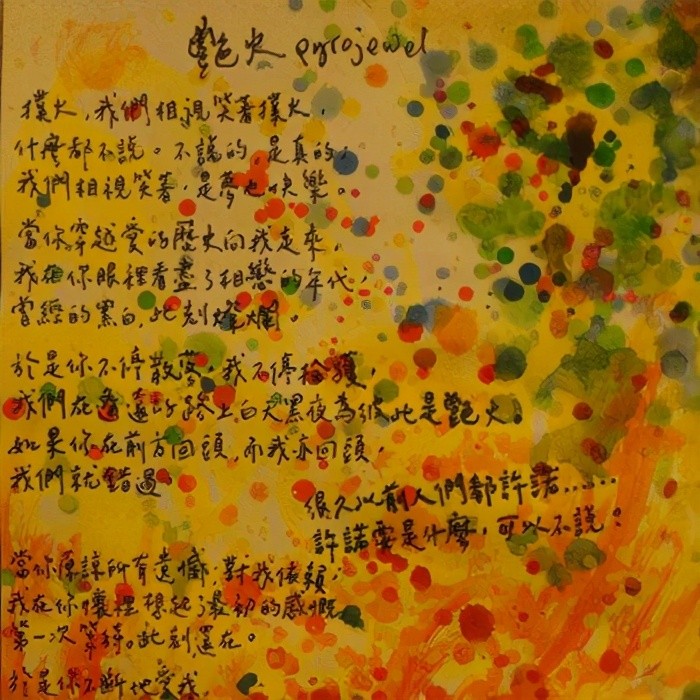 艷火 pyrojewel
撲火，我們相視笑著撲火，
什麼都不說。不說的，是真的；
我們相視笑著，是夢也快樂。
當你穿越愛的歷史向我走來，
我在你眼裡看盡了相戀的年代，
曾經的黑白，此刻燦爛。
於是你不停散落，我不停拾獲，
我們在遙遠的路上白天黑夜為彼此是艷火。
如果你在前方回頭，而我亦回頭，
我們就錯過。
很久以前人們都許諾……
許諾要是什麼，可以不說？
當你原諒所有遺憾，對我依賴，
我在你懷裡想起了最初的感慨，
第一次等待。此刻還在。
於是你不斷地愛我，